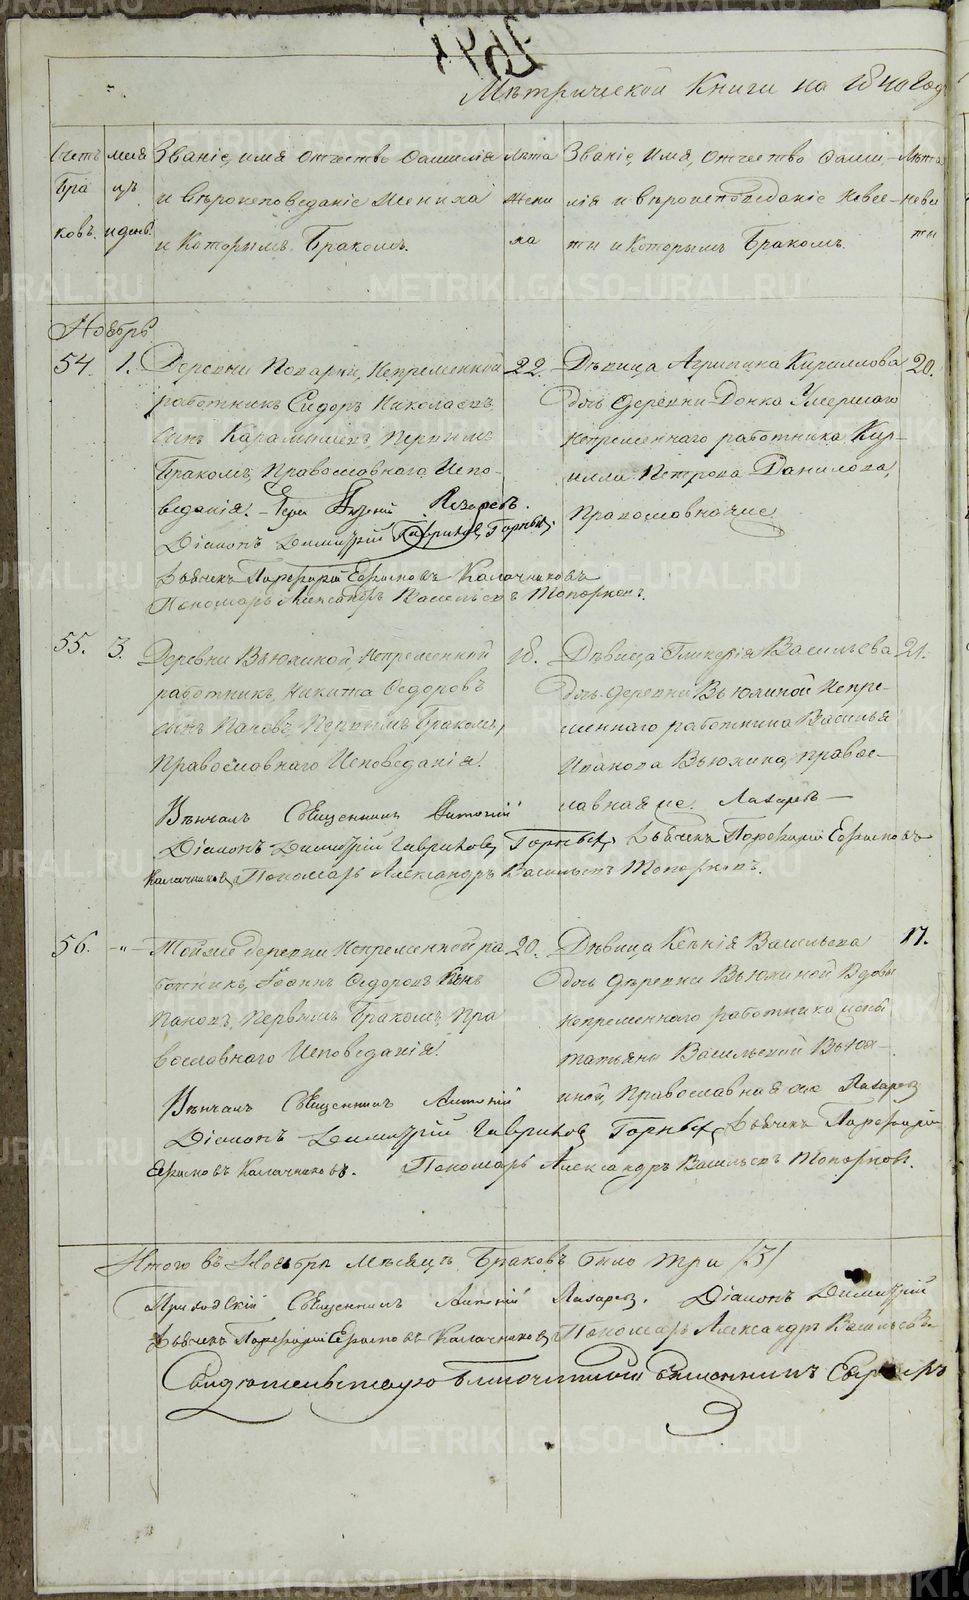 Метрической Книги на 1840 Год
Счетъ
Бра
ковъ.
меся
цъ
и день.
Званіе, имя отчество Фамилія
и вѣроисповеданіе Жениха
и Которымъ Бракомъ.
Лѣта
Жени
ха
Званіе, Имя, отчество Фами-
лія и вѣроисповѣданіе Невес-
ты и Которымъ Бракомъ.
Лѣта
невес
ты
Ноябрь
54. 1. Деревни Поварни, Непременной
работникъ Сидоръ Николаевъ
сынъ Карамышевъ, Первымъ
Бракомъ, Православнаго Испо-
веданія.
22.
Дѣвица Агрипина Кириллова
дочь Деревни Умершаго
непременнаго работника Кир-
илла Петрова Данилова,
Православнаго же
20.
Лазаревъ.
Діаконъ Димитрій Гавриловъ Горныхъ
Дьячекъ Порфирій Ефимовъ Калачниковъ
Пономарь Александръ Васильевъ Топорковъ.
55. 3. Деревни Вьюхиной, Непременной
работникъ, Никита Федоровъ
сынъ Пановъ, Первымъ Бракомъ,
Православнаго Исповеданія.
18.
Дѣвица Гликерія Васильева
дочь деревни Вьюхиной Непре-
меннаго работника Василья
Иванова Вьюхина, Правос-
лавная же.
21.
Вѣнчалъ Священникъ Антоній Лазаревъ
Діаконъ Димитрій Гавриловъ Горныхъ Дьячекъ Порфирій Ефимовъ
Калачниковъ Пономарь Александръ Васильевъ Топорковъ.
56. -"- Той же деревни Непременной ра
ботникъ, Іоаннъ Федоровъ сынъ
Пановъ, Первымъ Бракомъ, Пра
вославнаго Исповеданія.
20.
Дѣвица Ксенія Васильева
дочь деревни Вьюхиной Вдовы
непременнаго работника жены
Татьяны Васильевой Вьюх-
иной, Православная же
17.
Вѣнчалъ Священникъ Антоній Лазаревъ
Діаконъ Димитрій Гавриловъ Горныхъ Дьячекъ Порфирій
Ефимовъ Калачниковъ. Пономарь Александръ Васильевъ Топорковъ.
Итого въ Ноябрѣ Месяцѣ Браковъ было три /3/
Приходскій Священникъ Антоній Лазаревъ. Діаконъ Димитрій
Дьячекъ Порфирій Ефимовъ Калачниковъ Пономарь Александръ Васильевъ
Свидѣтельствую Благочинный Священникъ
METRIKI.GASO-URAL.RU